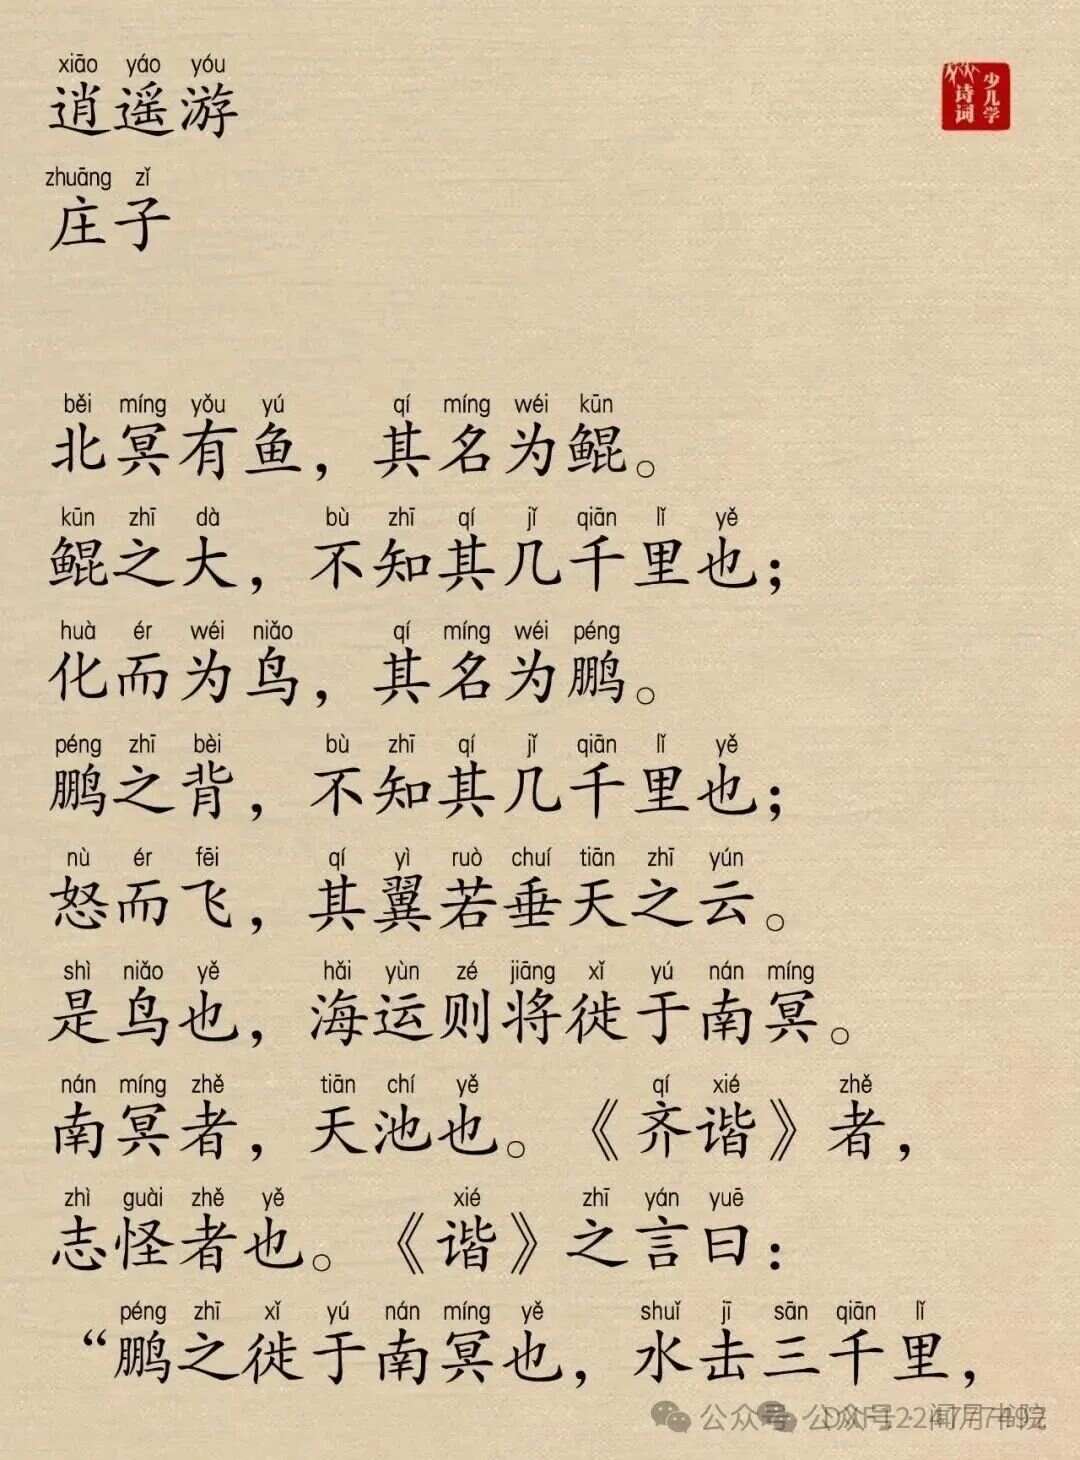 xiāo yáo yóu
逍遥游
zhuāng zǐ
庄子
少儿学
诗词
běi míng yǒu yú qí míng wéi kūn
北冥有鱼，其名为鲲。
kūn zhī dà bù zhī qí jǐ qiān lǐ yě
鲲之大，不知其几千里也；
huà ér wéi niǎo qí míng wéi péng
化而为鸟，其名为鹏。
péng zhī bèi bù zhī qí jǐ qiān lǐ yě
鹏之背，不知其几千里也；
nù ér fēi qí yì ruò chuí tiān zhī yún
怒而飞，其翼若垂天之云。
shì niǎo yě hǎi yùn zé jiāng xǐ yú nán míng
是鸟也，海运则将徙于南冥。
nán míng zhě tiān chí yě qí xié zhě
南冥者，天池也。《齐谐》者，
zhì guài zhě yě xié zhī yán yuē
志怪者也。《谐》之言曰：
péng zhī xǐ yú nán míng yě shuǐ jī sān qiān lǐ
“鹏之徙于南冥也，水击三千里，
公众号 公众号